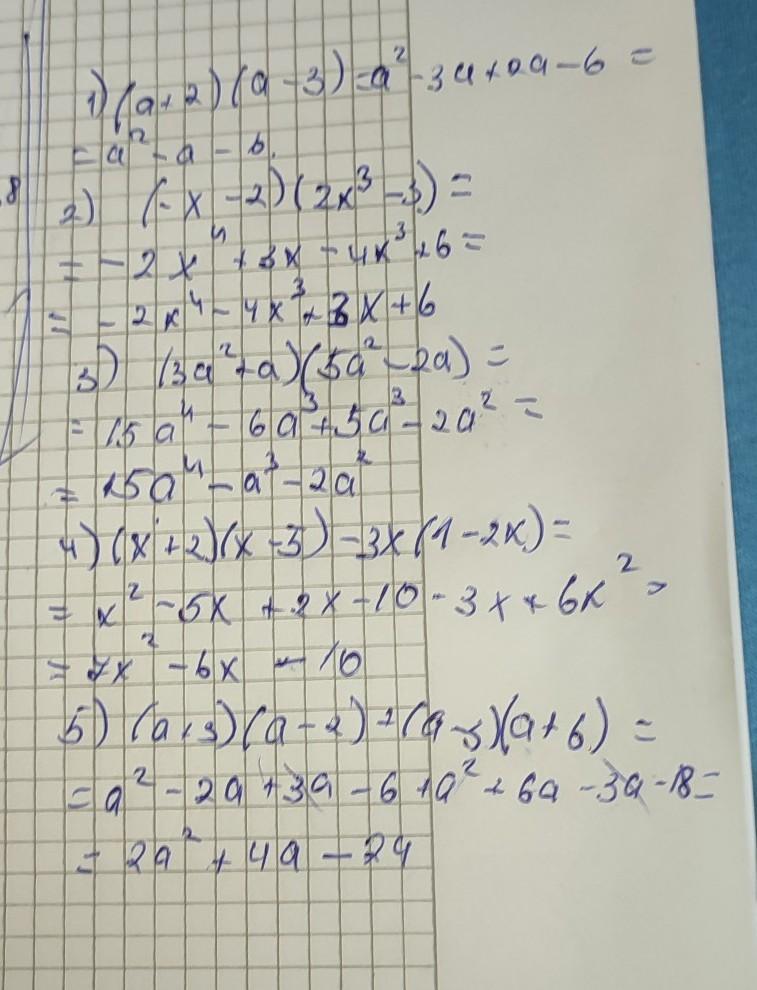 8
1) (a+2)(a-3)=a²-3a+2a-6=
=a²-a-6.
2) (-x-2)(2x³-3)=
=-2x⁴+3x-4x³+6=
=-2x⁴-4x³+3x+6
3) (3a²+a)(5a²-2a)=
=15a⁴-6a³+5a³-2a²=
=15a⁴-a³-2a²
4) (x+2)(x-5)-3x(1-2x)=
=x²-5x+2x-10-3x+6x²=
=7x²-6x-10
5) (a+3)(a-2)+(a-3)(a+6)=
=a²-2a+3a-6+a²+6a-3a-18=
=2a²+4a-24